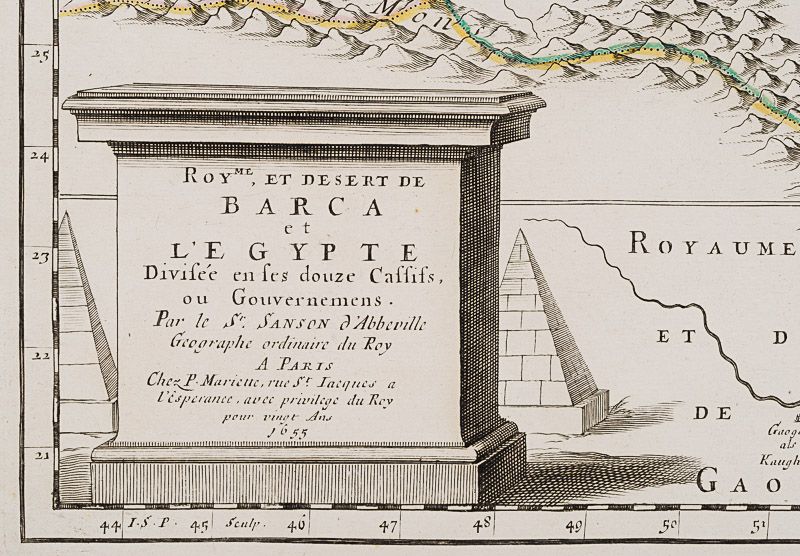 Mon
25
24
23
22
21
ROYME, ET DESERT DE
BARCA
et
L'EGYPTE
Divisée en ses douze Cassifs,
ou Gouvernemens.
Par le Sr. SANSON d'Abbeville
Geographe ordinaire du Roy
A PARIS
Chez P. Mariette, rue St Iacques a
l'Esperance, avec privilege du Roy
pour vingt Ans
1655
ROYAUME
ET D
DE
Gaog
als
Kaugh
GAO
44 I.S.P. 45 Sculp. 46 47 48 49 50 51